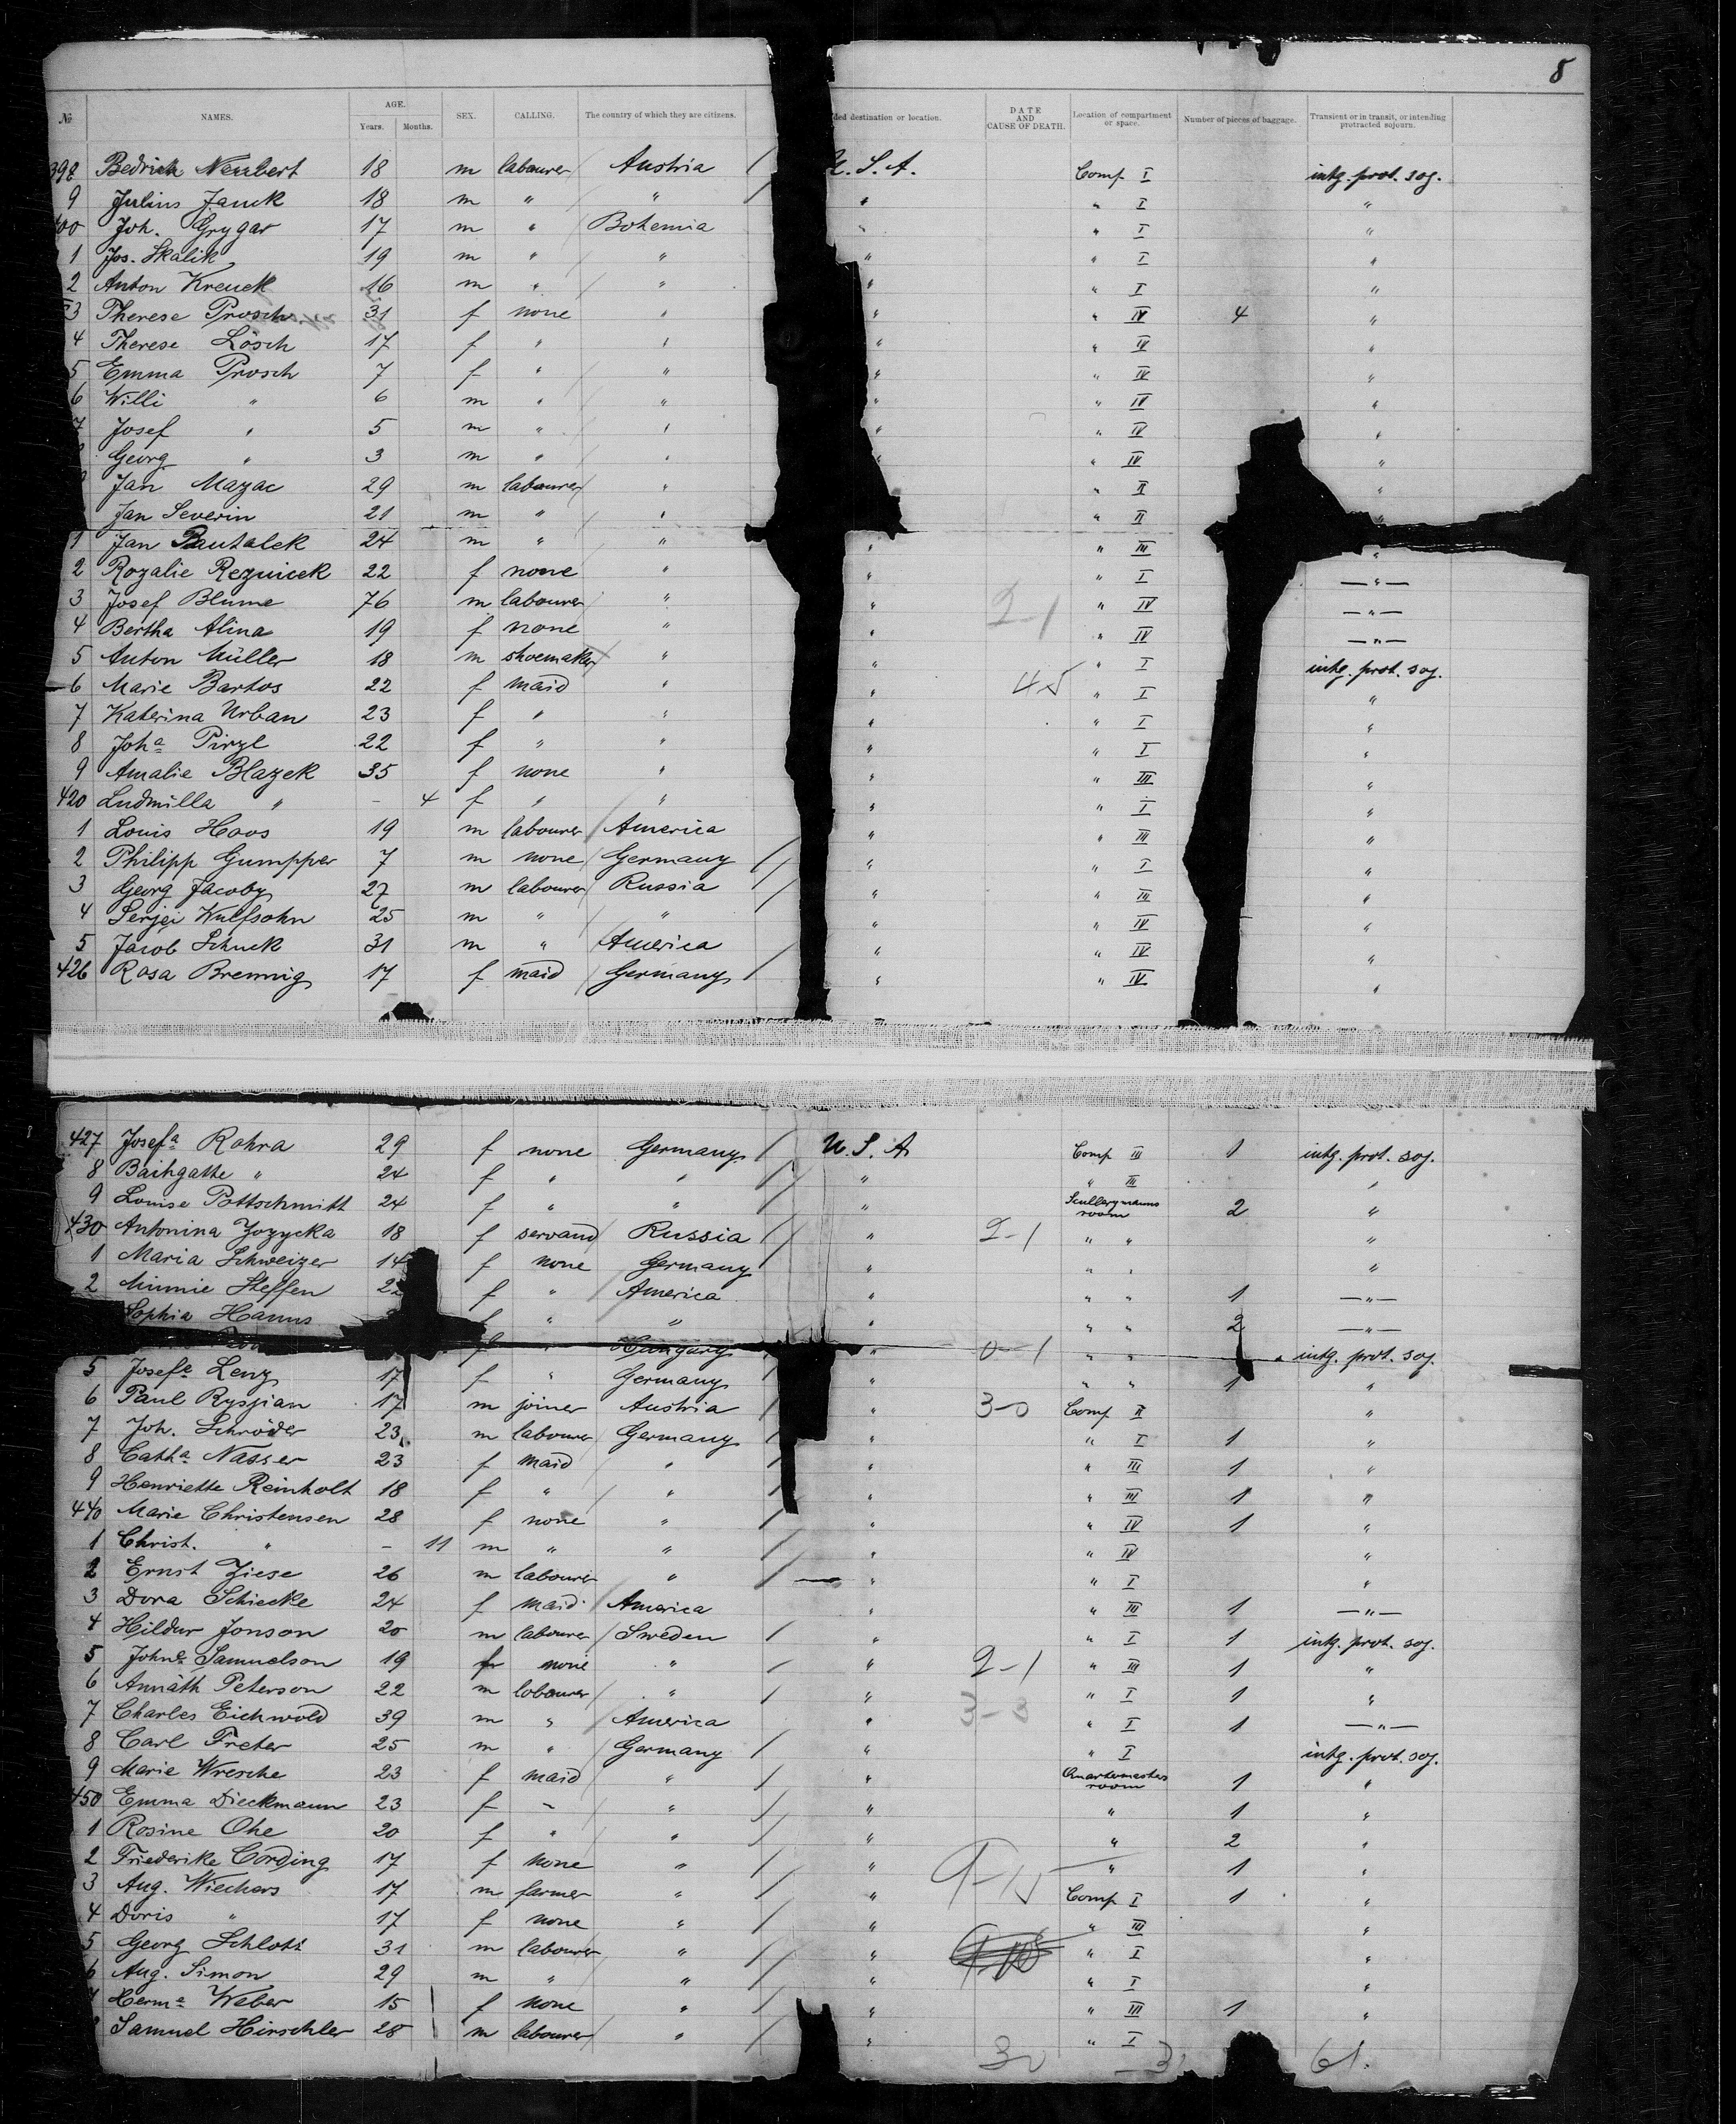 8
№ NAMES. AGE. Years. Months. SEX. CALLING. The country of which they are citizens. ded destination or location. DATE AND CAUSE OF DEATH. Location of compartment or space. Number of pieces of baggage. Transient or in transit, or intending protracted sojourn.
398 Bedrich Neubert 18 m labourer Austria U. S. A. Comp I intg. prot. soj.
9 Julius Janck 18 m " " " " I "
400 Joh. Grygar 17 m " Bohemia " " I "
1 Jos. Skalik 19 m " " " " I "
2 Anton Krenek 16 m " " " " I "
3 Therese Prosch 31 f none " " " IV 4 "
4 Therese Lösch 17 f " " " " IV "
5 Emma Prosch 7 f " " " " IV "
6 Willi " 6 m " " " " IV "
7 Josef " 5 m " " " " IV "
Georg " 3 m " " " " IV "
Jan Mazac 29 m labourer " " II "
Jan Severin 21 m " " " II "
1 Jan Pautalek 24 m " " " " III "
2 Rozalie Reznicek 22 f none " " " I — " —
3 Josef Blume 76 m labourer " " 2-1 " IV — " —
4 Bertha Alina 19 f none " " " IV — " —
5 Anton Müller 18 m shoemaker " " " I intg. prot. soj.
6 Marie Bartos 22 f maid " " 45 " I "
7 Katerina Urban 23 f " " " " I "
8 Joha Pirzl 22 f " " " " I "
9 Amalie Blazek 35 f none " " " III "
420 Ludmilla " - 4 f " " " " I "
1 Louis Haos 19 m labourer America " " III "
2 Philipp Gumpper 7 m none Germany " " I "
3 Georg Jacoby 27 m labourer Russia " " III "
4 Serjei Wulfsohn 25 m " " " " IV "
5 Jacob Schuck 31 m " America " " IV "
426 Rosa Brennig 17 f maid Germany " " IV "
427 Josefa Rohra 29 f none Germany U. S. A Comp III 1 intg. prot. soj.
8 Baihgatte " 24 f " " " " III "
9 Louise Pottschmitt 24 f " " " Scullerymanns room 2 "
430 Antonina Zozycka 18 f servand Russia " 2-1 " " "
1 Maria Schweizer 14 f none Germany " " " "
2 Minnie Steffen 22 f " America " " " 1 — " —
Sophia Hanns f " " " " " 2 — " —
f " Hungary " 0-1 " " intg. prot. soj.
5 Josefa Lenz 17 f " Germany " " " 1 "
6 Paul Rysjian 17 m joiner Austria " 3-0 Comp II "
7 Joh. Schröder 23 m labourer Germany " " I 1 "
8 Catha Nasser 23 f maid " " " III 1 "
9 Henriette Reinholt 18 f " " " " III 1 "
440 Marie Christensen 28 f none " " " IV 1 "
1 Christ. " - 11 m " " " " IV "
2 Ernst Ziese 26 m labourer " " " I "
3 Dora Schiecke 24 f maid America " " III 1 — " —
4 Hildur Jonson 20 m labourer Sweden " " I 1 intg. prot. soj.
5 Johna Samuelson 19 f none " " 2-1 " III 1 "
6 Annath Peterson 22 m labourer " " 3-3 " I 1 "
7 Charles Eichwold 39 m " America " " I 1 — " —
8 Carl Freter 25 m " Germany " " I intg. prot. soj.
9 Marie Wresche 23 f maid " " Quartermasters room 1 "
450 Emma Dieckmann 23 f " " " " 1 "
1 Rosine Ohe 20 f " " " " 2 "
2 Friederike Cording 17 f none " " " 1 "
3 Aug. Wiechers 17 m farmer " " Comp I 1 "
4 Doris " 17 f none " " " III "
5 Georg Schlotz 31 m labourer " " " I "
6 Aug. Simon 29 m " " " " I "
Herma Weber 15 f none " " " III 1 "
Samuel Hirschler 28 m labourer " " " I
61.